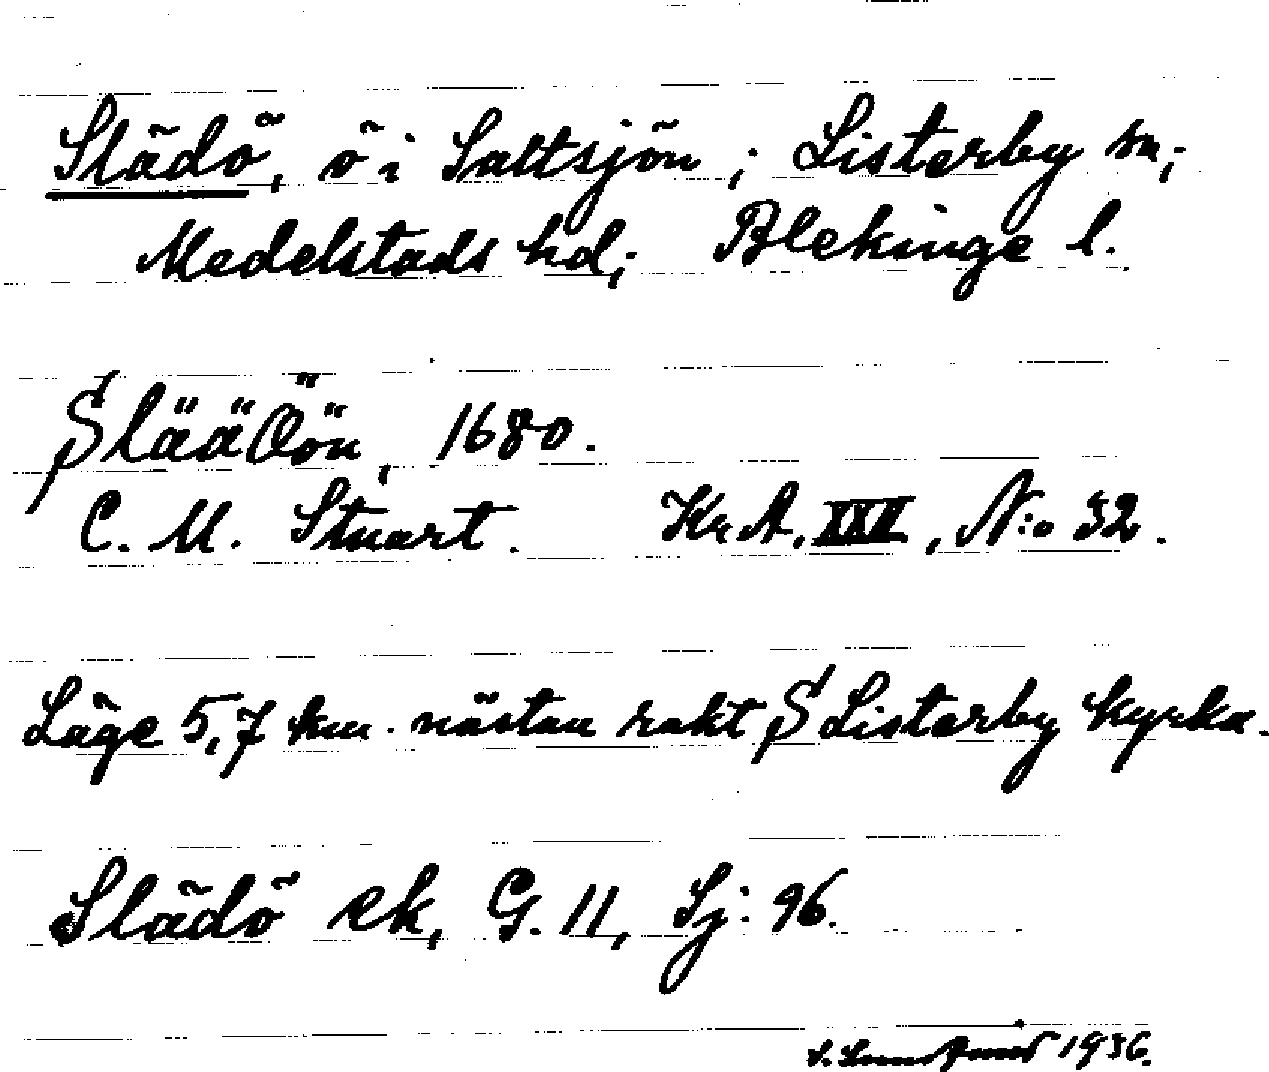 Slädö, ö i Saltsjön; Listerby sn;
Medelstads hd; Blekinge l.
Slää Öön, 1680.
C. M. Stuart. Kr. A. XXV, N:o 32.
Läge 5,7 km. nästan rakt S Listerby kyrka.
Slädö ek, G. 11, Sj: 96.
1936.